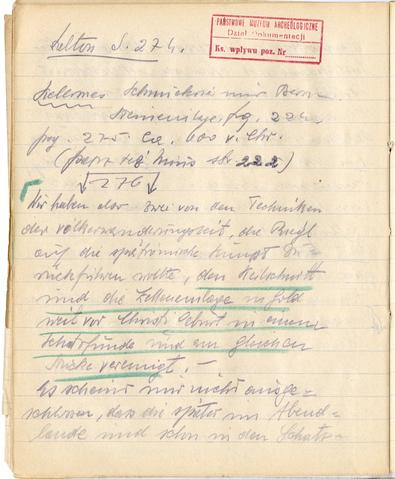 PAŃSTWOWE MUZEUM ARCHEOLOGICZNE
Dział Dokumentacji
Ks. wpływu poz. Nr
S. 274.
Kelermes Schmuckerei mit Bern-
steineinlage, fg. 224,
pag. 275. Ca. 600 v. Chr.
(popr też Minns str 222)
276
Wir haben also zwei von den Techniken
der Völkerwanderungszeit, die Riegl
auf die spätrömische Kunst zu-
rückführen wollte, den Keilschnitt
und die Zelleneinlage in Gold
weit vor Christi Geburt in einem
Schatzfunde und am gleichen
Stücke vereinigt. —
Es scheint mir nicht ausge-
schlossen, dass die später im Abend-
lande und schon in den Schatz-